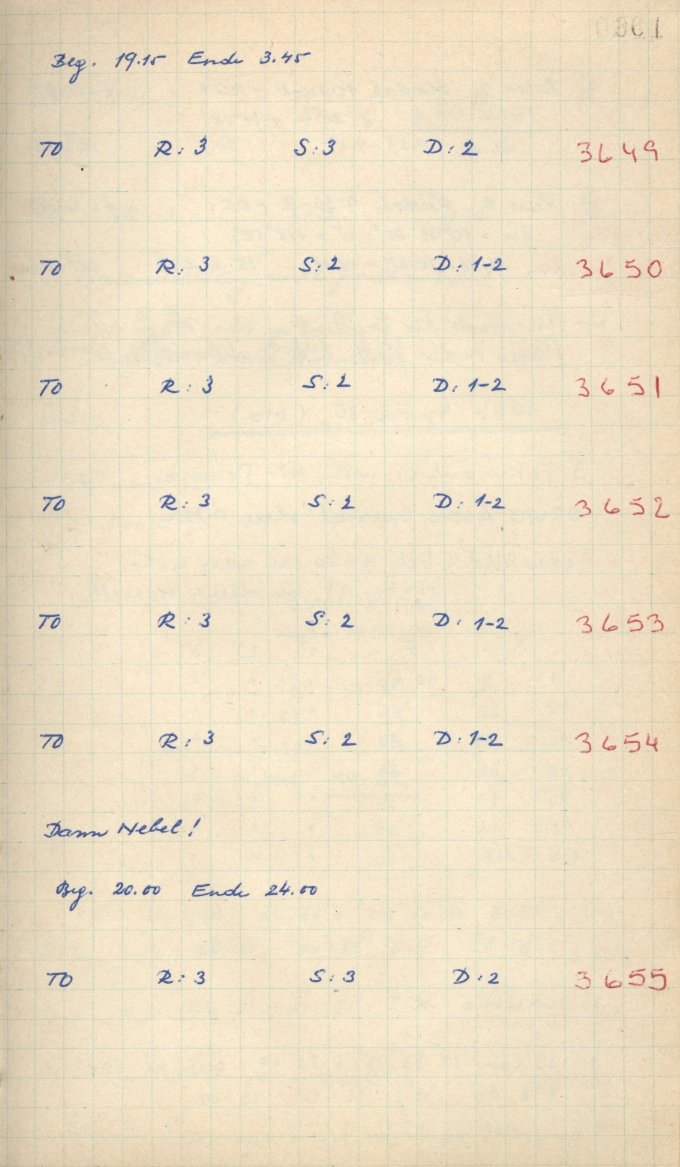 Beg. 19.15 Ende 3.45
TO R: 3 S: 3 D: 2 3649
TO R: 3 S: 2 D: 1-2 3650
TO R: 3 S: 2 D: 1-2 3651
TO R: 3 S: 2 D: 1-2 3652
TO R: 3 S: 2 D: 1-2 3653
TO R: 3 S: 2 D: 1-2 3654
Dann Nebel!
Beg. 20.00 Ende 24.00
TO R: 3 S: 3 D: 2 3655